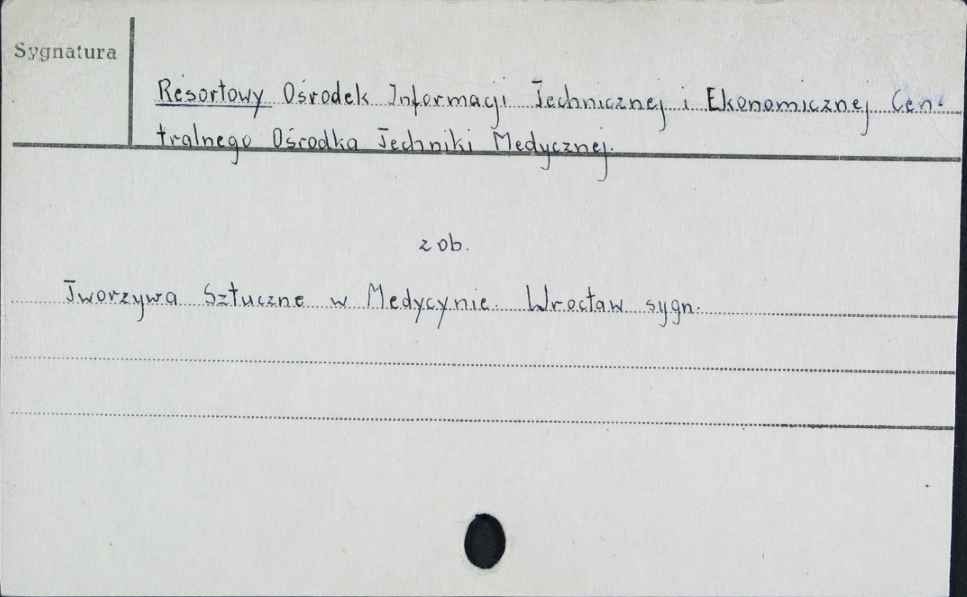 Sygnatura
Resortowy Ośrodek Informacji Technicznej i Ekonomicznej Cen-
tralnego Ośrodka Techniki Medycznej.
zob.
Tworzywa Sztuczne w Medycynie. Wrocław sygn.